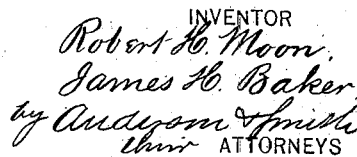 INVENTOR
Robert H. Moon.
James H. Baker
by Anderson & Smith
their ATTORNEYS